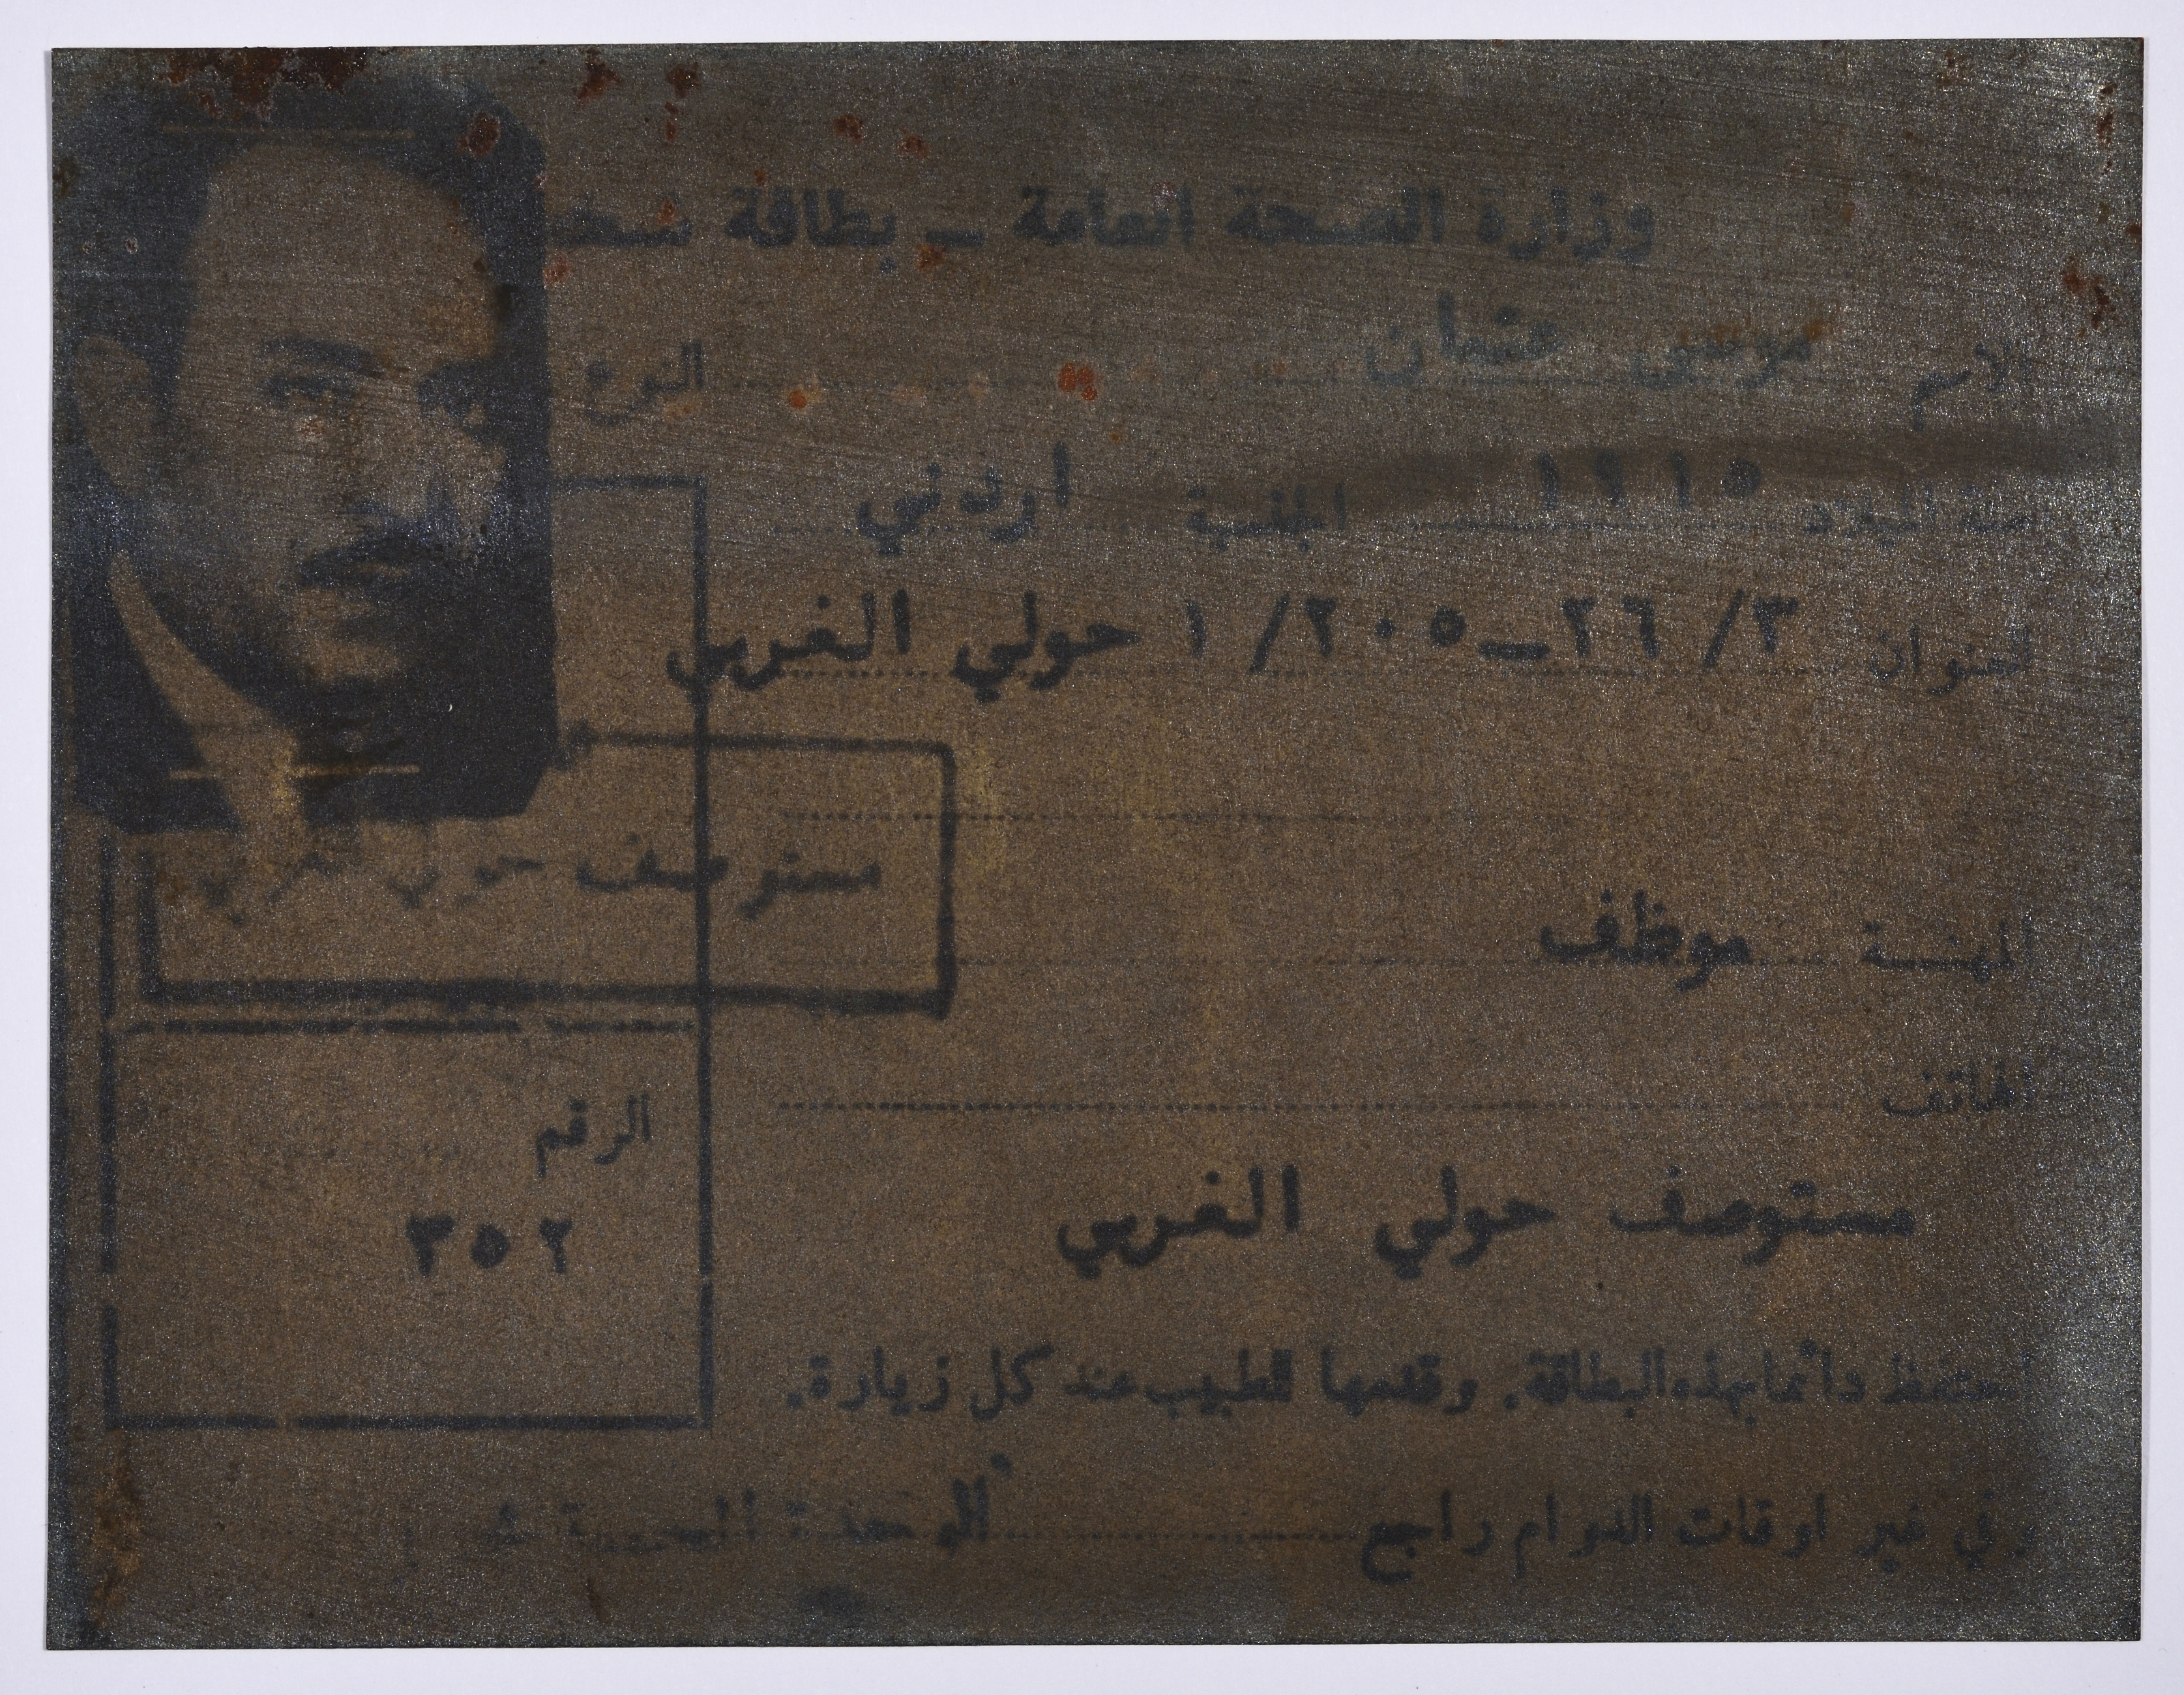 وزارة الصحة العامة - بطاقة
الاسم موسى عثمان النوع
سنة الميلاد ١٩١٥ الجنسية اردني
العنوان ٣/ ٢٦-٢٠٥/ ١ حولي الغربي
مستوصف حولي الغربي
المهنة موظف
الهاتف
الرقم
٣٥٢
مستوصف حولي الغربي
احتفظ دائما بهذه البطاقة. وقدمها للطبيب عند كل زيارة.
وفي غير اوقات الدوام راجع الوحدة